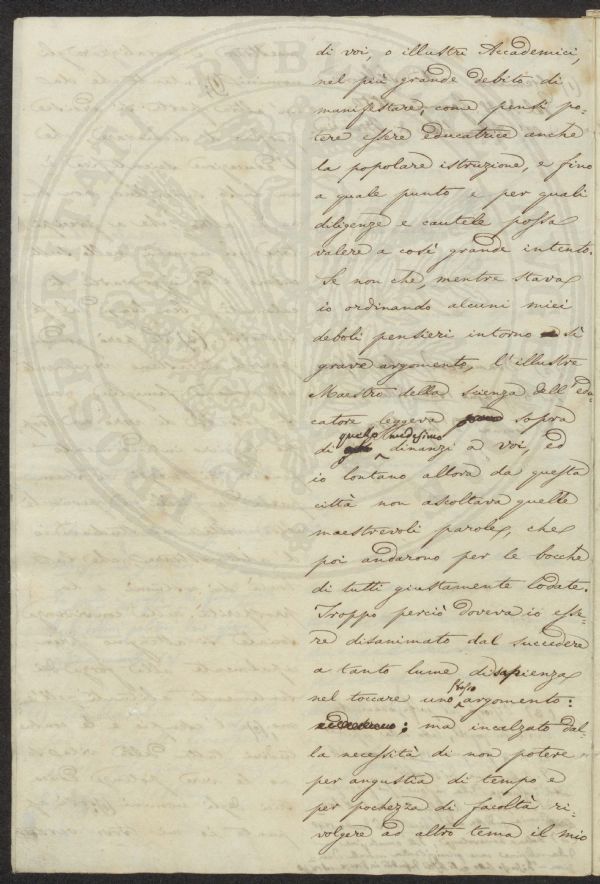 di voi, o illustri Accademici,
nel più grande debito di
manifestare, come pensi po-
tere essere educatrice anche
la popolare istruzione, e fino
a quale punto e per quali
diligenze e cautele possa
valere a così grande intento.
Se non che, mentre stava
io ordinando alcuni miei
deboli pensieri intorno sì
grave argomento, l'illustre
Maestro della scienza dell'edu-
catore leggeva sopra
quello medesimo
di dinanzi a voi, ed
io lontano allora da questa
città non ascoltava quelle
maestrevoli parole, che
poi andarono per le bocche
di tutti giustamente lodate.
Troppo perciò doveva io esse-
re disanimato dal succedere
a tanto lume di sapienza
stesso
nel toccare uno argomento:
; ma incalzato dal-
la necessità di non potere
per angustia di tempo e
per pochezza di facoltà ri-
volgere ad altro tema il mio